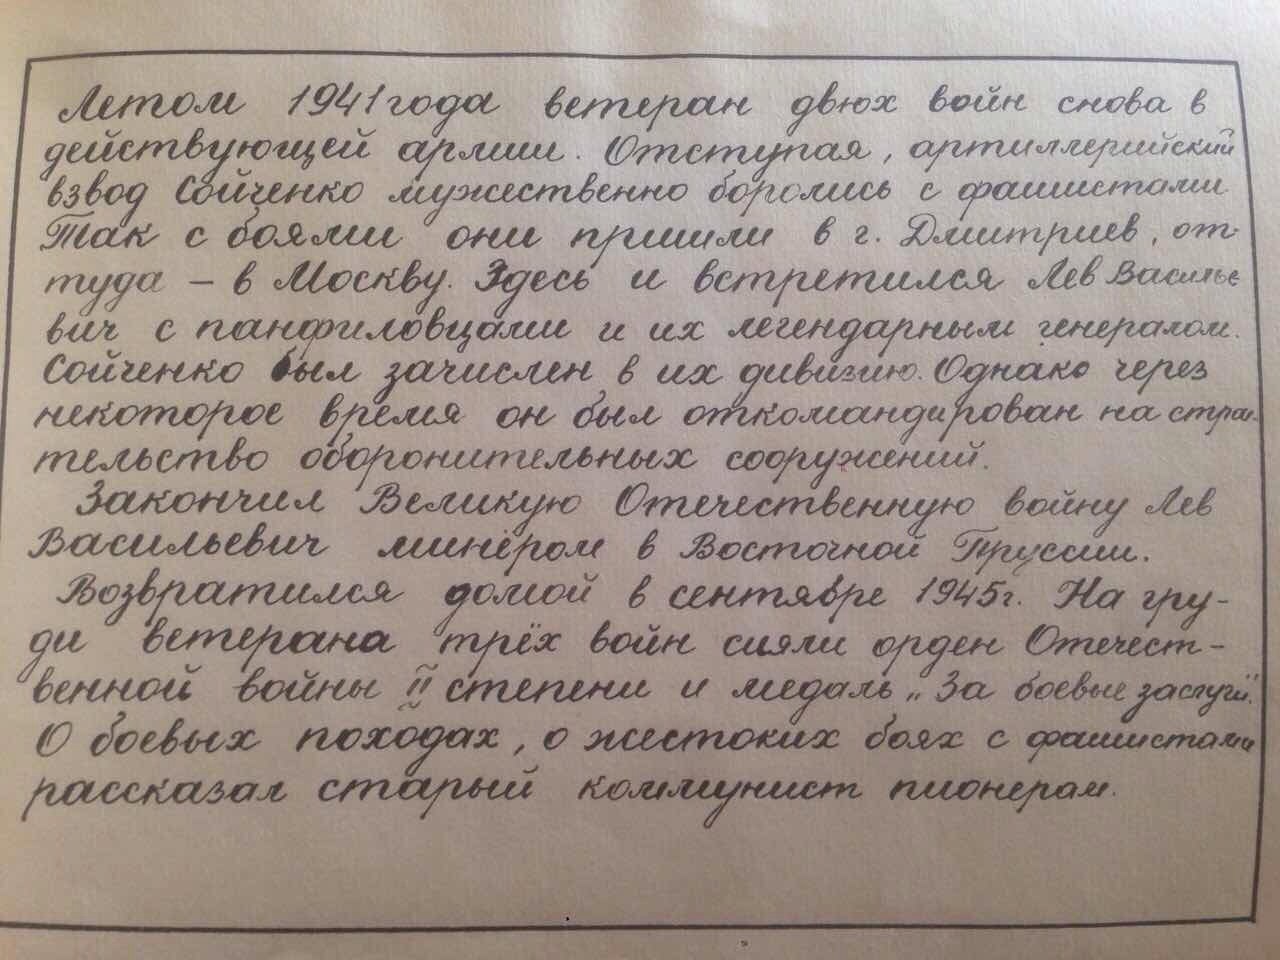 Летом 1941 года ветеран двух войн снова в
действующей армии. Отступая, артиллерийский
взвод Сойченко мужественно боролись с фашистами.
Так с боями они пришли в г. Дмитриев, от-
туда – в Москву. Здесь и встретился Лев Василье
вич с панфиловцами и их легендарным генералом.
Сойченко был зачислен в их дивизию. Однако через
некоторое время он был откомандирован на строи-
тельство оборонительных сооружений.
Закончил Великую Отечественную войну Лев
Васильевич минёром в Восточной Пруссии.
Возвратился домой в сентябре 1945г. На гру-
ди ветерана трёх войн сияли орден Отечест-
венной войны II степени и медаль „За боевые заслуги".
О боевых походах, о жестоких боях с фашистами
рассказал старый коммунист пионерам.